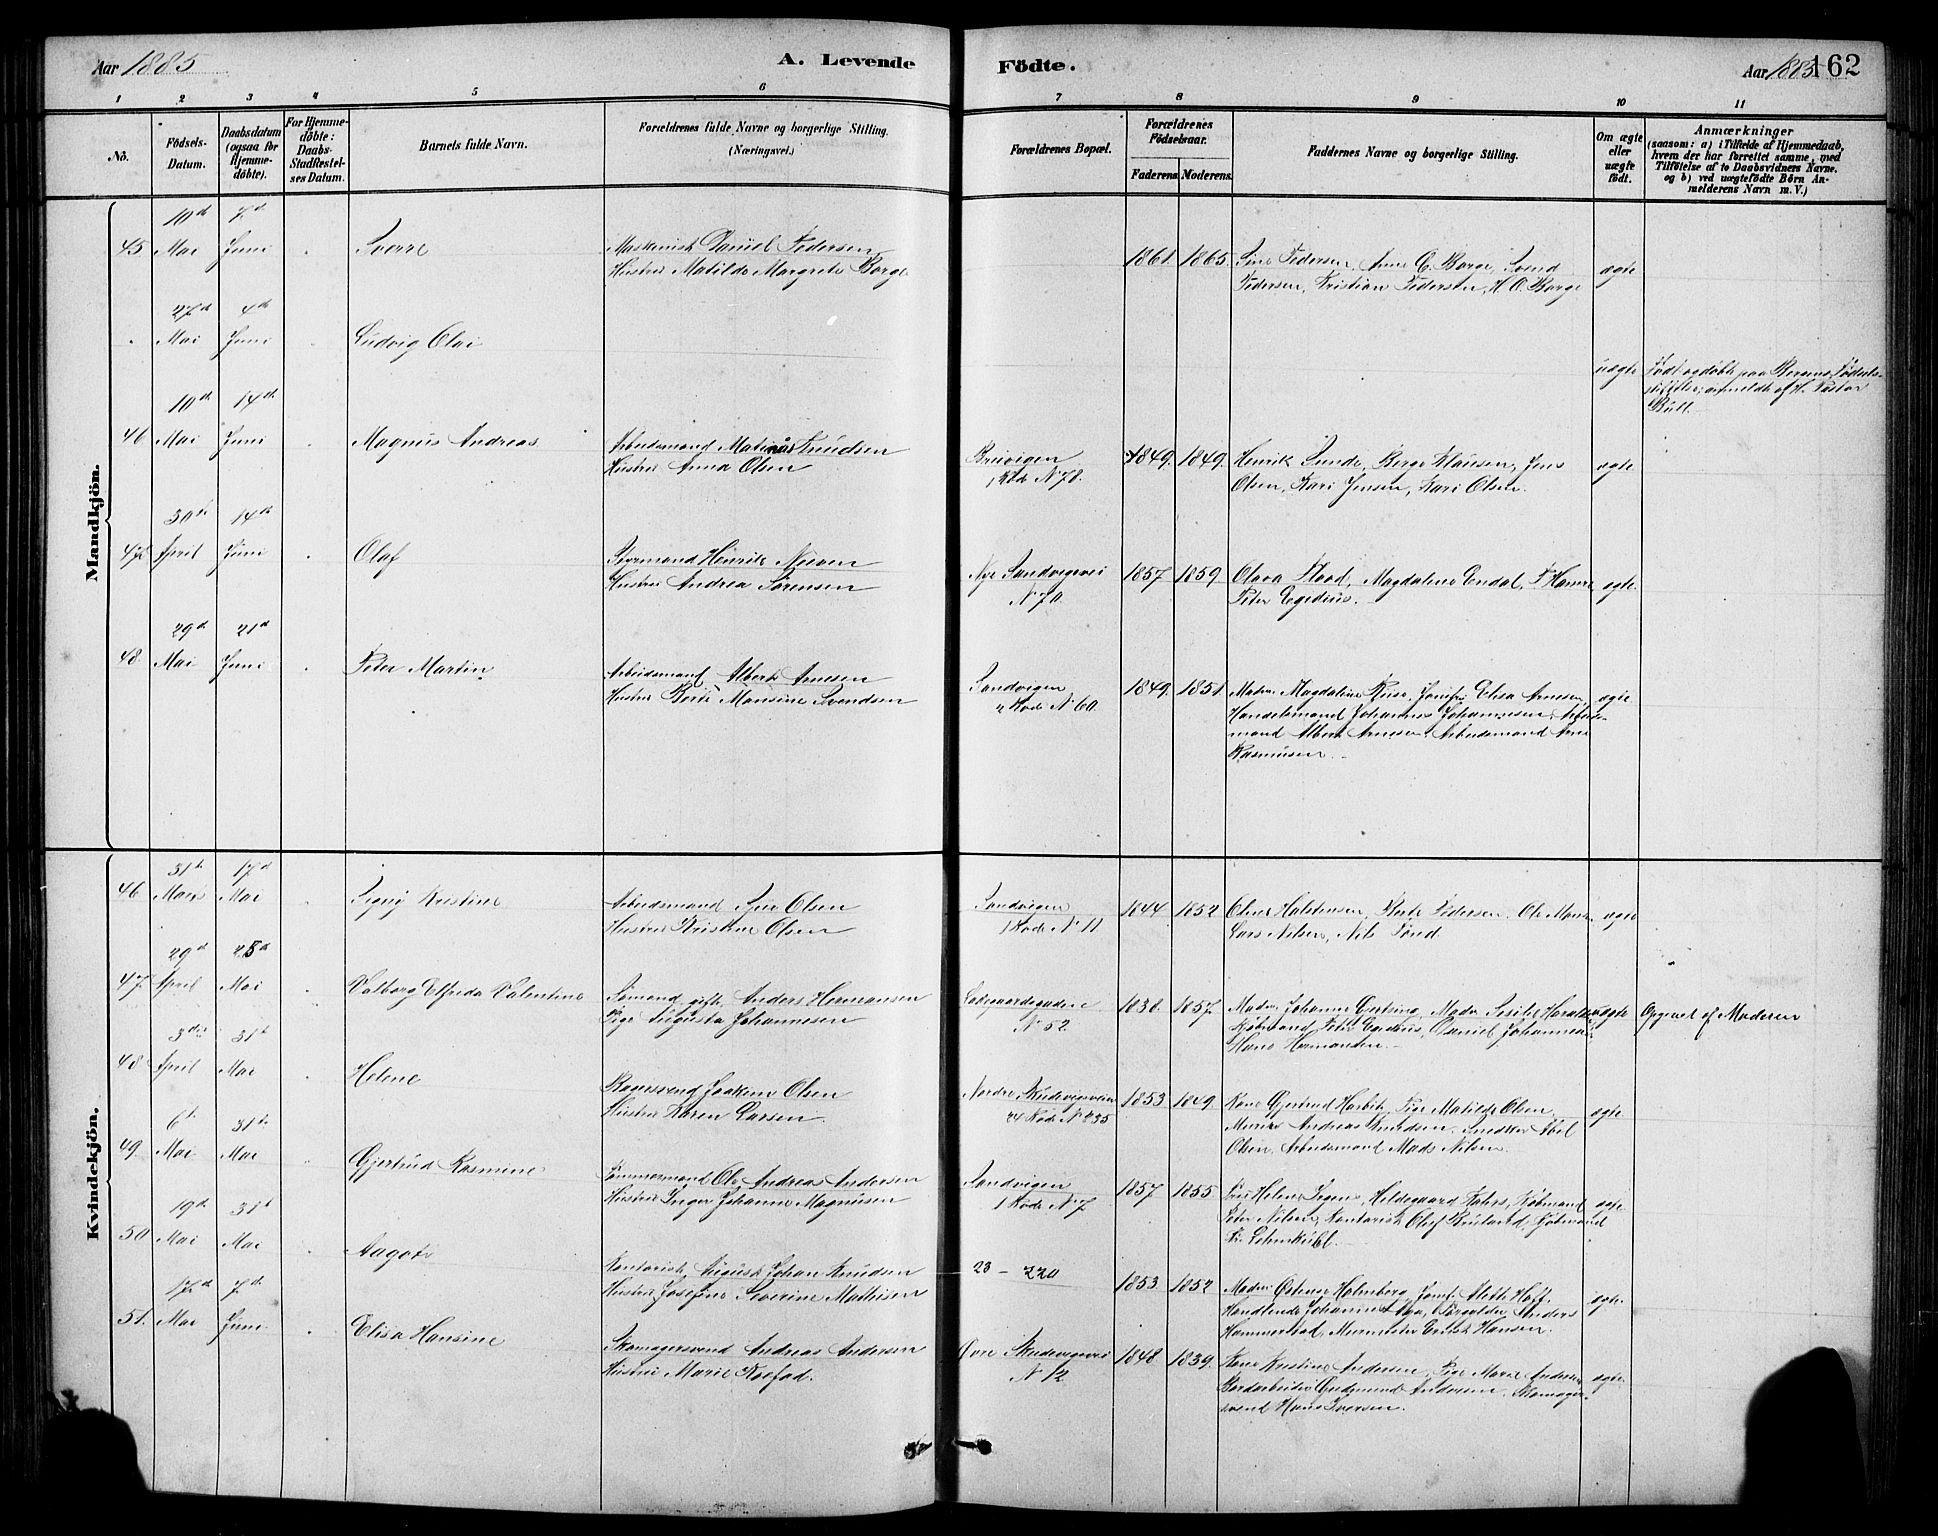 Aar 1885
A. Levende
Födte.
Aar 1885
162
1 2 3 4 5 6 7 8 9 10 11
No.
Födsels-
Datum.
Daabsdatum
(ogsaa for
Hjemme-
döbte).
For Hjemme-
döbte:
Daabs-
Stadfestel-
ses Datum.
Barnets fulde Navn.
Forældrenes fulde Navne og borgerlige Stilling.
(Næringsvei.)
Forældrenes Bopæl.
Forældrenes
Födselsaar.
Faderens. Moderens.
Faddernes Navne og borgerlige Stilling.
Om ægte
eller
uægte
födt.
Anmærkninger
(saasom: a) i Tilfælde af Hjemmedaab,
hvem der har forrettet samme, med
Tilföielse af to Daabsvidners Navne,
og b) ved uægtefödte Börn An-
melderens Navn m. V.)
Mandkjön.
10de 7de
45 Mai Juni Sverre
Maskinist Daniel Pedersen
Hustru Matilde Margrete Borge
1861 1865.
Pedersen, Anna C. Borge, Svend
Pedersen, Kristian Pedersen, H. O. Borge
ægte
27de 4de
Mai Juni Ludvig Olai
uægte
Födt og döbt paa Bergens Födsels-
stiftelse; anmeldt af Hr. Pastor
Bull
10de 14de
46 Mai Juni Magnus Andreas
Arbeidsmand Matias Knudsen
Hustru Anna Olsen
Bruvigen
1 Rode N 78.
1849. 1849.
Henrik Sunde, Berge Klausen, Jens
Olsen, Kari Jensen, Kari Olsen.
ægte
30te 14de
47 April Juni Olaf
Styrmand Henrik
Hustru Andrea Sørensen
Nye Sandvigsvei
N 70.
1857 1859
Olava Flood, Magdalene Endal,
Peter Egedius.
ægte.
29de 21de
48. Mai Juni Peter Martin
Arbeidsmand Albert Arnesen
Hustru Berte Monsine Svendsen
Sandvigen
2 Rode N 60.
1849. 1851
Madm. Magdalene Jomfru Elisa Arnesen,
Handelsmand Johannes Johannesen, Arbeids-
mand Albert Arnesen, Arbeidsmand Arne
Rasmusen.
ægte
Kvindekjön.
31te 17de
46 Marts Mai Signy Kristine
Arbeidsmand Olsen
Hustru Kristine Olsen
Sandvigen
1 Rode N 11
1844 1852
Oline Halstensen, Berte Pedersen, Ole Mons
Lars Nilsen, Nils
ægte
29de 25de
47. April Mai Valborg Elfrida Valentine
Sömand gift, Anders Hermansen
Pige Augusta Johannesen
Ladegaardsgaden
N 52
1830. 1857.
Madm. Johanne Madm. Sesilie
Kjöbmand Peter Egedius, Daniel Johannesen
Hans Hermansen.
uægte
Opgivet af Moderen
3die 31te
48 April Mai Helene
Bagersvend Joakim Olsen
Hustru Karen Larsen.
Nordre Skudevigsveien
24 Rode N 235
1853 1849.
Kone Gjertrud Pige Matilde Olsen
Murer Andreas Knudsen, Snedker Abel
Olsen, Arbeidsmand Mads Nilsen.
ægte
6te 31te
49. Mai Mai Gjertrud Rasmine
Tömmermand Ole Andreas Andersen
Hustru Inger Johanne Magnusen
Sandvigen
1 Rode N 7
1857 1855
Helene Hildegaard Kjöbmand
Peter Nilsen, Kontorist Olaf Kjöbmand
Fr. Lehmkuhl
ægte
19de 31te
50 Mai Mai Aagot
Kontorist, August Johan Knudsen
Hustru Josefine Severine Mathisen
23 – 220
1853 1852
Madm. Holmberg, Jomf. Alette Hoff,
Handlende Johannes Anders
Hammerstad, Murmester Hansen.
ægte
17de 7de
51. Mai Juni Elisa Hansine
Skomagersvend Andreas Andersen
Hustru Marie Koefod.
Övre Skudevigsvei
N 12
1848 1839.
Kone Kristine Andersen, Pige Marie Andersen
Gudmund Andersen, Skomager-
svend Hans Iversen.
ægte